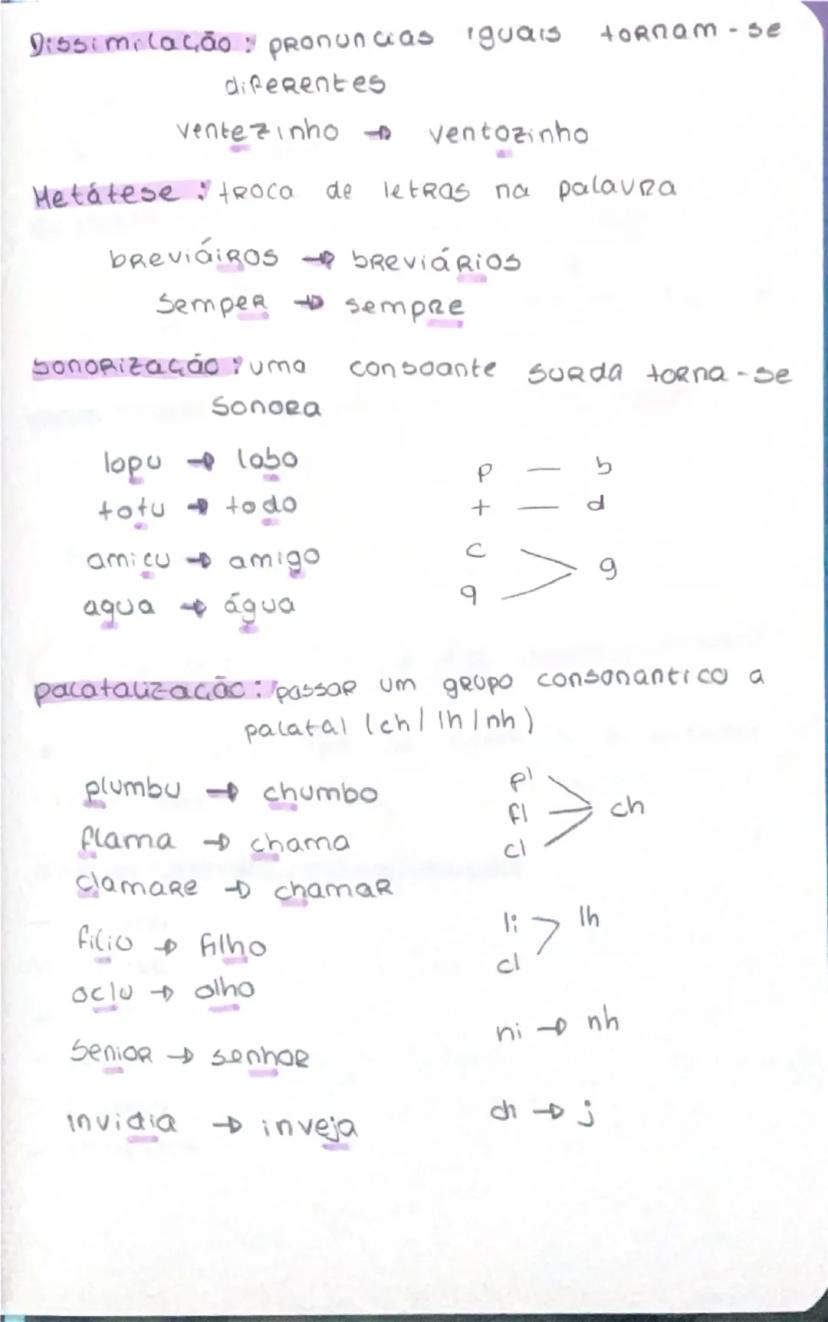 Dissimilação: pronuncias iguais tornam-se
diferentes
ventezinho → ventozinho
Metátese: troca de letras na palavra
breviáiros → breviários
semper → sempre
sonorização: uma consoante surda torna-se
sonora
lopu → lobo
p — b
totu → todo
t — d
amicu → amigo
c
g
agua → água
q
palatalização: passar um grupo consonantico a
palatal (ch/lh/nh)
plumbu → chumbo
pl
flama → chama
fl
ch
clamare → chamar
cl
filio → filho
li > lh
oclu → olho
cl
senior → senhor
ni → nh
invidia → inveja
di → j